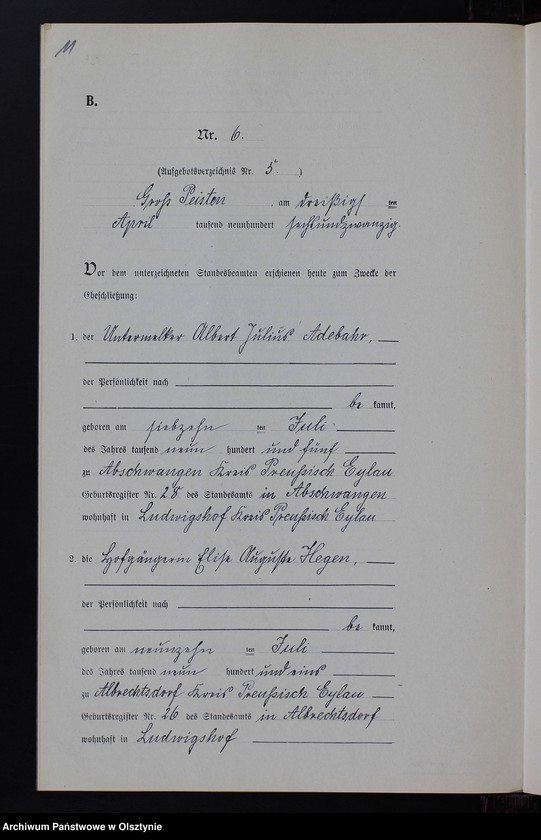 11
B.
Nr. 6.
(Aufgebotsverzeichnis Nr. 5.)
Groß Peisten, am dreißigsten
April tausend neunhundert sechsundzwanzig.
Vor dem unterzeichneten Standesbeamten erschienen heute zum Zwecke der
Eheschließung:
1. der Untermelker Albert Julius Adebahr,
der Persönlichkeit nach
be kannt,
geboren am siebzehn ten Juli
des Jahres tausend neun hundert und fünf
zu Abschwangen Kreis Preußisch Eylau
Geburtsregister Nr. 28 des Standesamts in Abschwangen
wohnhaft in Ludwigshof Kreis Preußisch Eylau
2. die Hofgängerin Elise Auguste Hegen,
der Persönlichkeit nach
be kannt,
geboren am neunzehn ten Juli
des Jahres tausend neun hundert und eins
zu Albrechtsdorf Kreis Preußisch Eylau
Geburtsregister Nr. 26 des Standesamts in Albrechtsdorf
wohnhaft in Ludwigshof
Archiwum Państwowe w Olsztynie